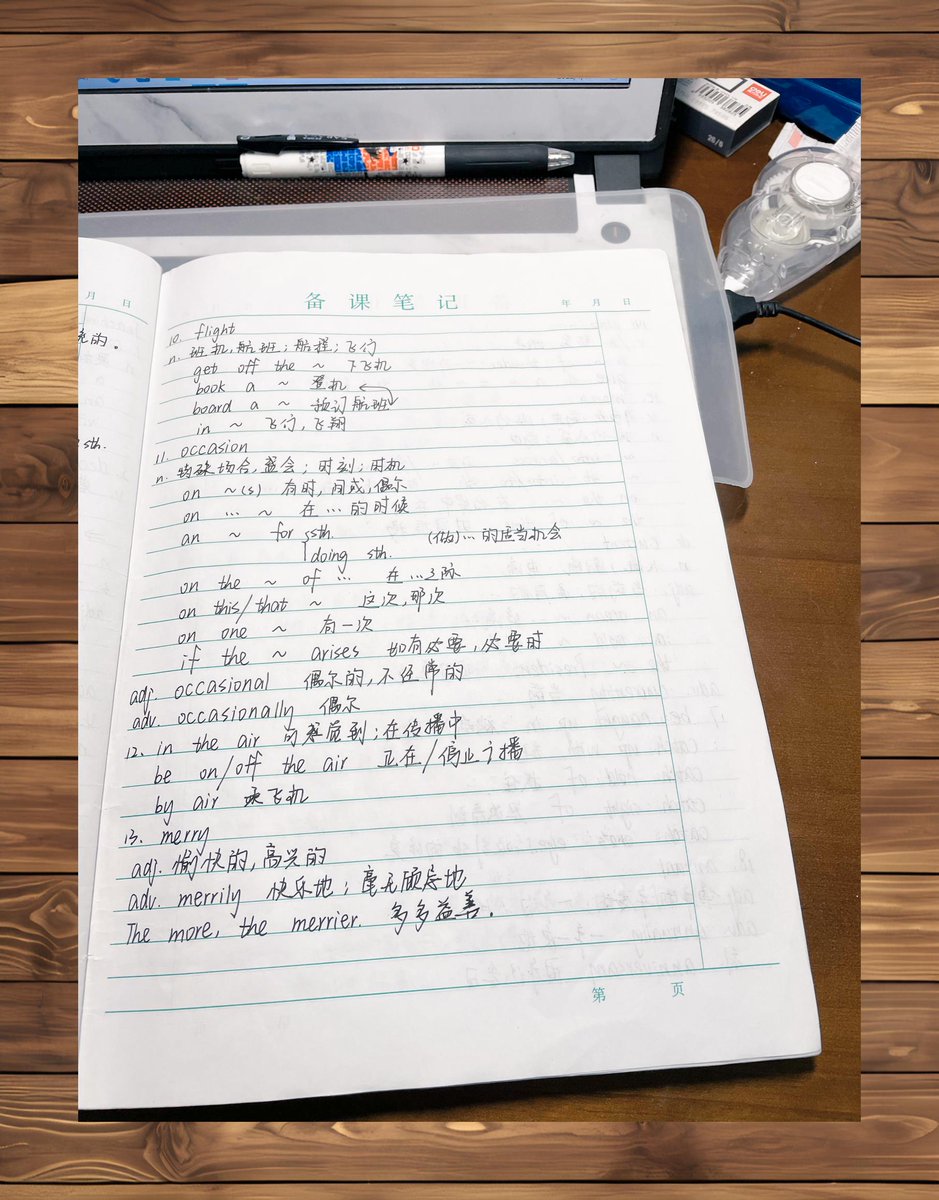 备课笔记
年 月 日
10. flight
n. 班机,航班;航程;飞行
get off the ~ 下飞机
book a ~ 登机
board a ~ 预订航班
in ~ 飞行,飞翔
11. occasion
n. 特殊场合,盛会;时刻;时机
on ~(s) 有时,间或,偶尔
on … ~ 在…的时候
an ~ for sth. (做)…的适当机会
doing sth.
on the ~ of … 在…之际
on this/that ~ 这次,那次
on one ~ 有一次
if the ~ arises 如有必要,必要时
adj. occasional 偶尔的,不经常的
adv. occasionally 偶尔
12. in the air 可感觉到;在传播中
be on/off the air 正在/停止广播
by air 乘飞机
13. merry
adj. 愉快的,高兴的
adv. merrily 快乐地;毫无顾虑地
The more, the merrier. 多多益善.
第 页
月 日
的。
sth.
deli